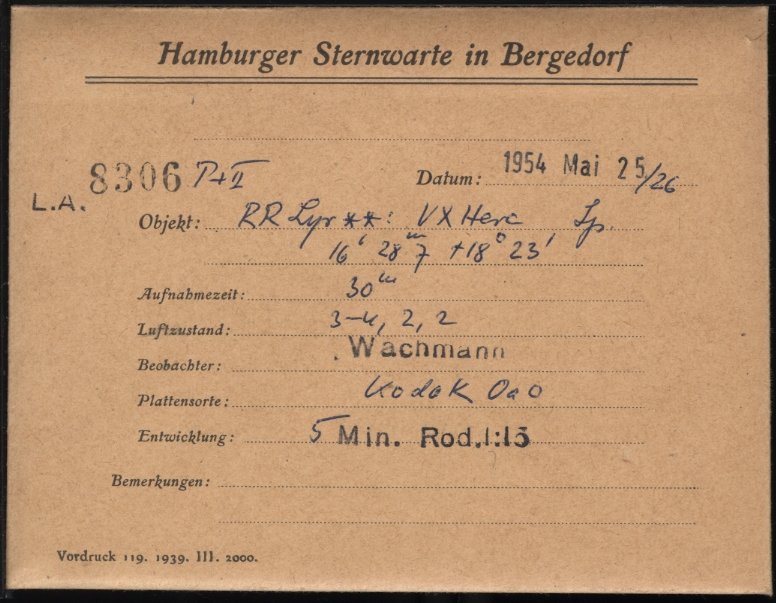 Hamburger Sternwarte in Bergedorf
8306 P+II
Datum: 1954 Mai 25/26
L.A.
Objekt: RR Lyr **: VX Herc Sp.
16ʰ 28ᵐ7 +18° 23'
Aufnahmezeit: 30ᵐ
Luftzustand: 3-4, 2, 2
Beobachter: Wachmann
Plattensorte: Kodak OaO
Entwicklung: 5 Min. Rod.1:15
Bemerkungen:
Vordruck 119. 1939. III. 2000.